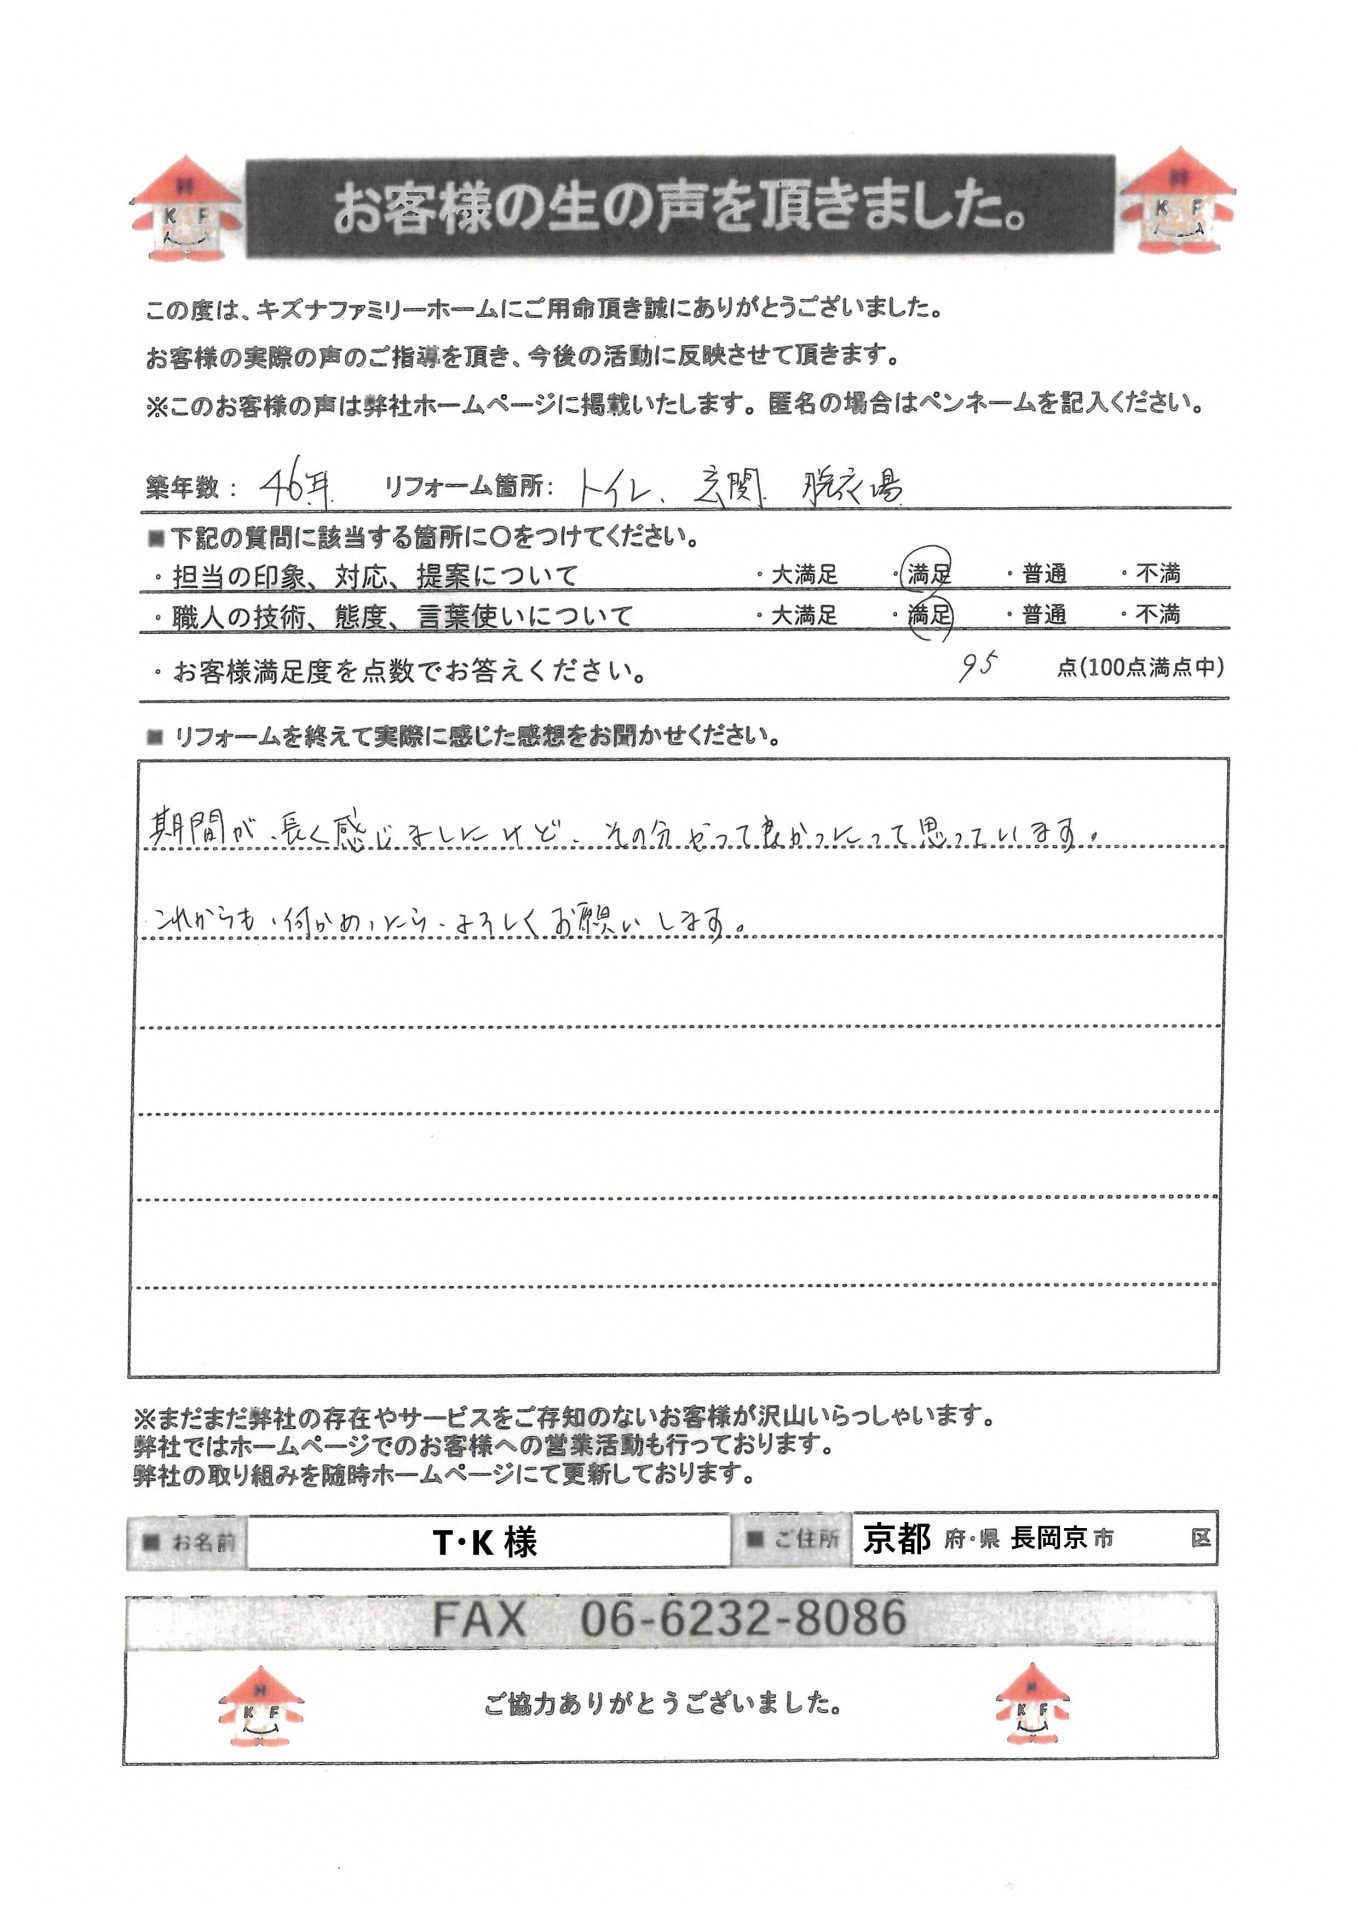 お客様の生の声を頂きました。
この度は、キズナファミリーホームにご用命頂き誠にありがとうございました。
お客様の実際の声のご指導を頂き、今後の活動に反映させて頂きます。
※このお客様の声は弊社ホームページに掲載いたします。匿名の場合はペンネームを記入ください。
築年数: 46年 リフォーム箇所: トイレ、玄関、脱衣場
■下記の質問に該当する箇所に〇をつけてください。
・担当の印象、対応、提案について ・大満足 ・満足 ・普通 ・不満
・職人の技術、態度、言葉使いについて ・大満足 ・満足 ・普通 ・不満
・お客様満足度を点数でお答えください。 95 点(100点満点中)
■ リフォームを終えて実際に感じた感想をお聞かせください。
期間が、長く感じましたけど、その分やって良かったって思っています。
これからも、何かあったら、よろしくお願いします。
※まだまだ弊社の存在やサービスをご存知のないお客様が沢山いらっしゃいます。
弊社ではホームページでのお客様への営業活動も行っております。
弊社の取り組みを随時ホームページにて更新しております。
■ お名前 T・K 様 ■ ご住所 京都 府・県 長岡京 市 区
FAX 06-6232-8086
ご協力ありがとうございました。
H
K F
H
K F
H
K F
H
K F